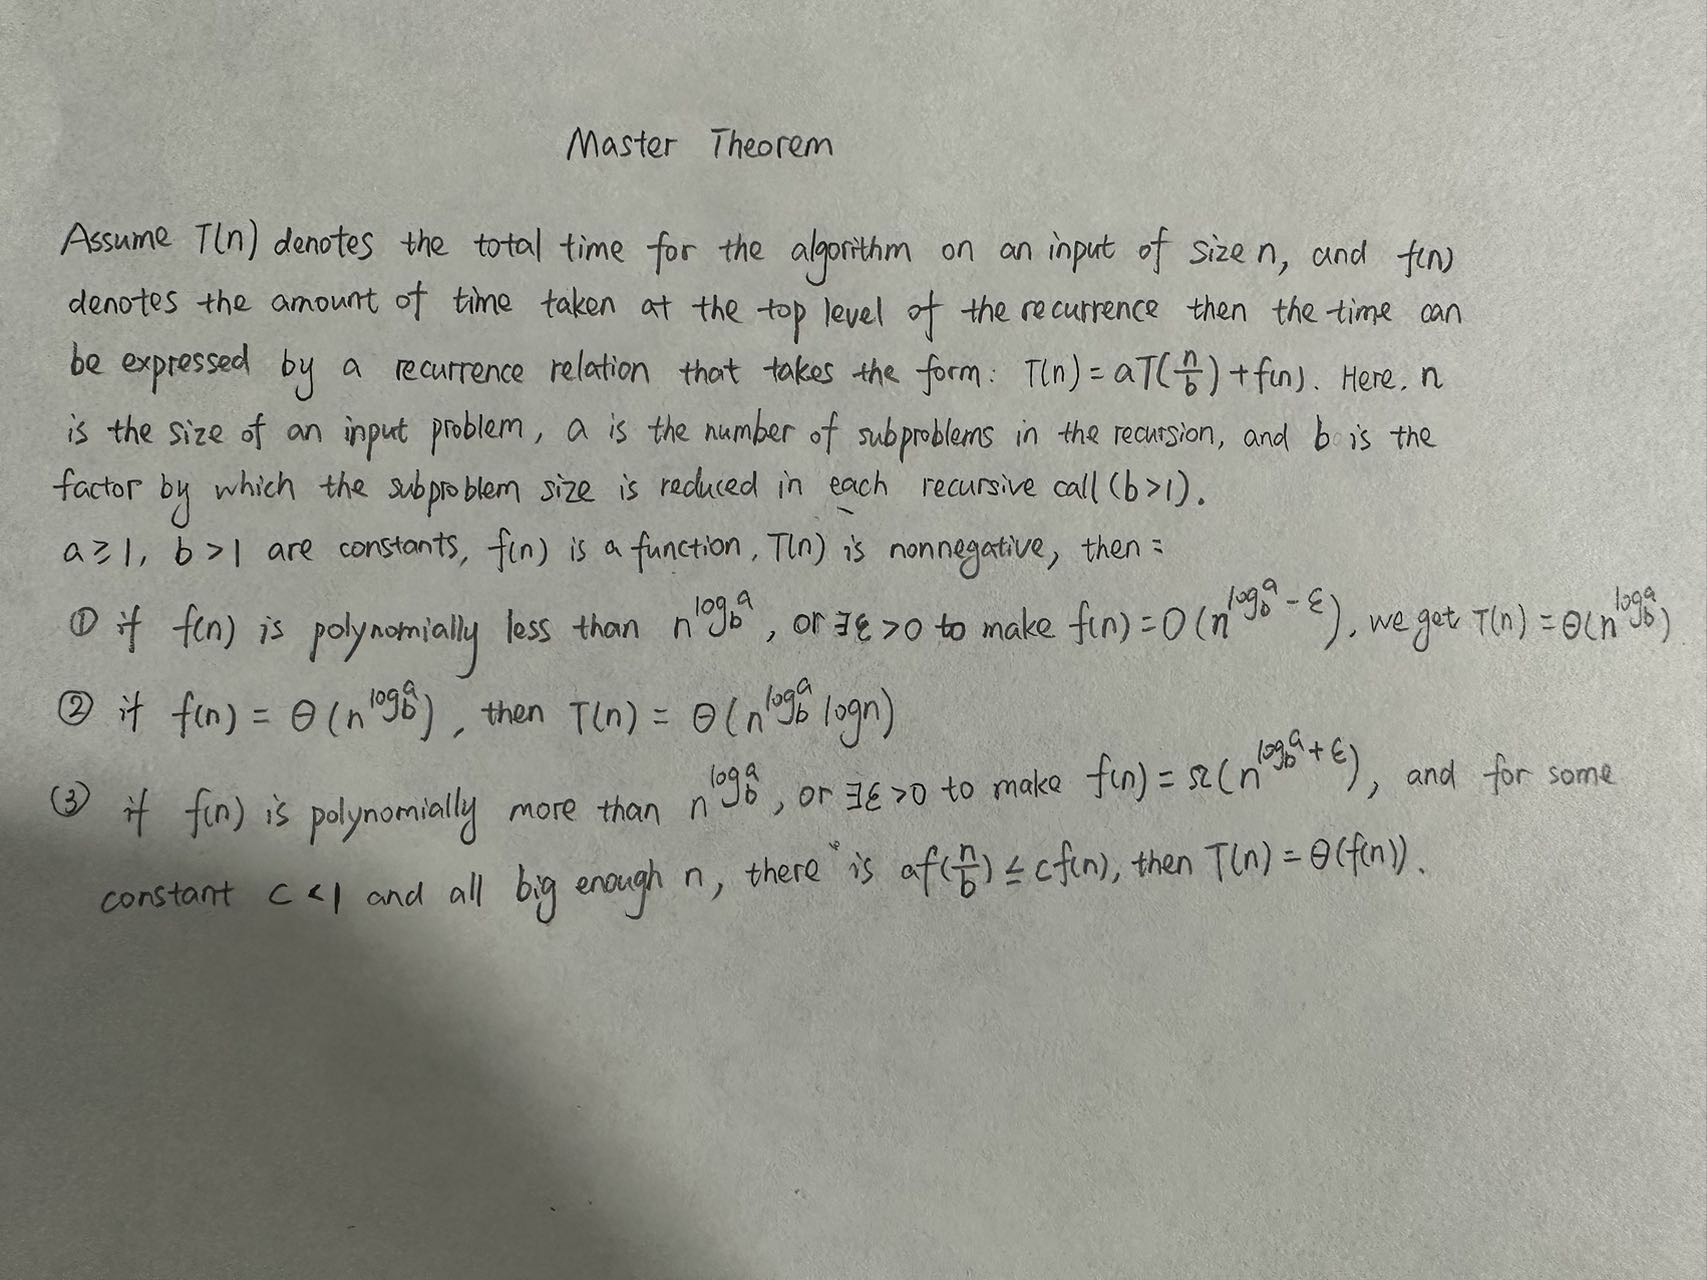 Master Theorem
Assume T(n) denotes the total time for the algorithm on an input of size n, and f(n)
denotes the amount of time taken at the top level of the recurrence then the time can
be expressed by a recurrence relation that takes the form: T(n) = aT(n/b) + f(n). Here, n
is the size of an input problem, a is the number of subproblems in the recursion, and b is the
factor by which the subproblem size is reduced in each recursive call (b>1).
a≥1, b>1 are constants, f(n) is a function, T(n) is nonnegative, then:
① if f(n) is polynomially less than n^(log_b^a), or ∃ε>0 to make f(n) = O(n^(log_b^a - ε)), we get T(n) = Θ(n^(log_b^a))
② if f(n) = Θ(n^(log_b^a)), then T(n) = Θ(n^(log_b^a) logn)
③ if f(n) is polynomially more than n^(log_b^a), or ∃ε>0 to make f(n) = Ω(n^(log_b^a + ε)), and for some
constant c<1 and all big enough n, there is af(n/b) ≤ cf(n), then T(n) = Θ(f(n)).